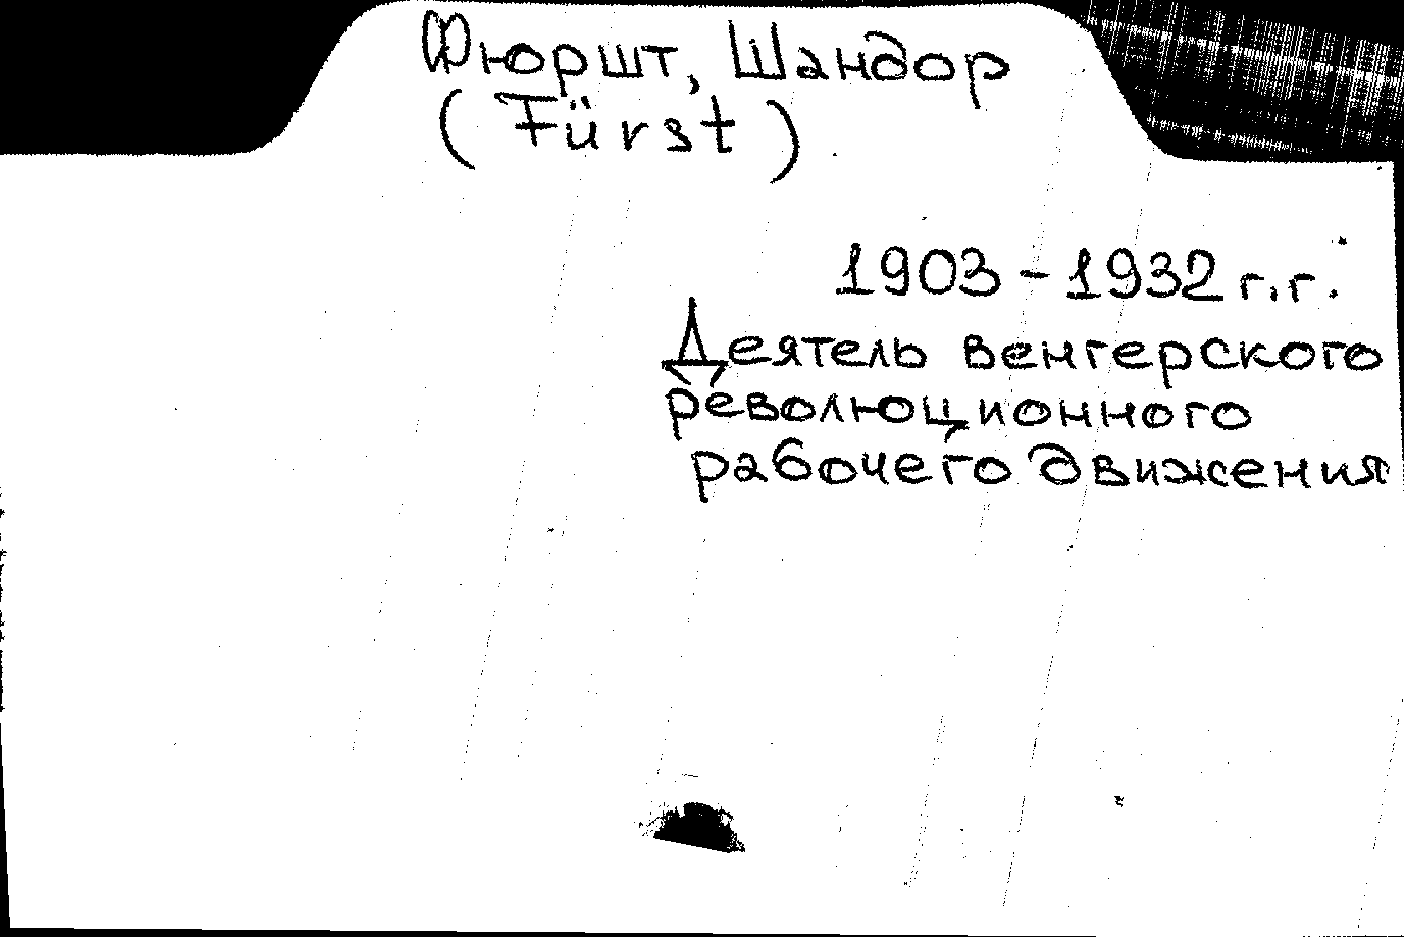 Фюршт, Шандор
(Fürst)
1903-1932 г.г.
Деятель венгерского
революционного
рабочего движения